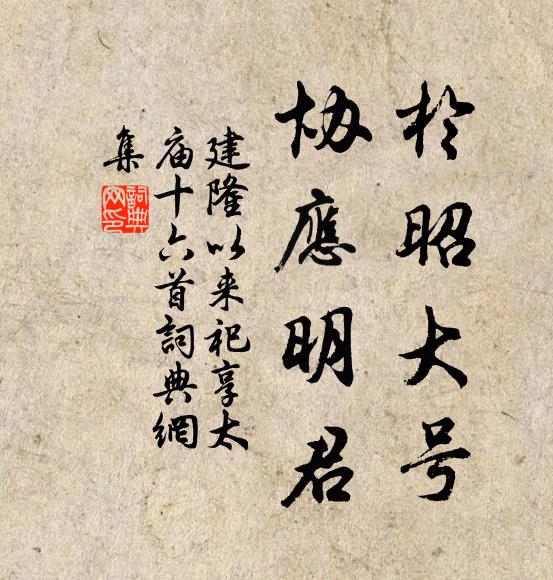 於昭大号
协應明君
建隆以来祀享太
庙十六首詞典網
集
詞典
网印